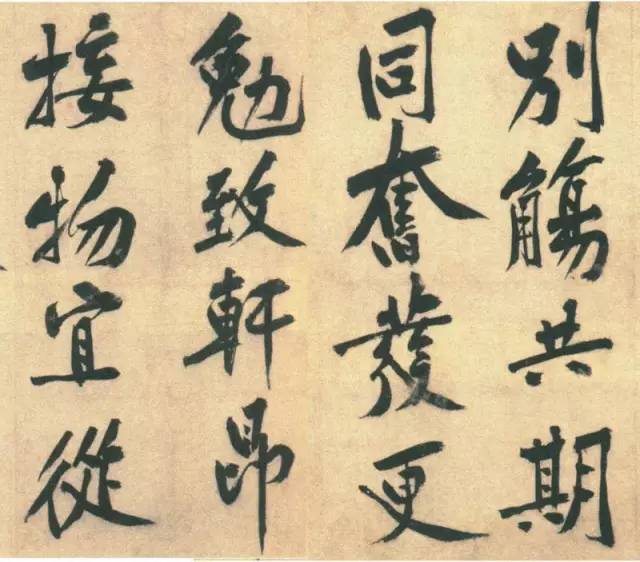 別觴共期
同奮發更
勉致軒昂
接物宜從